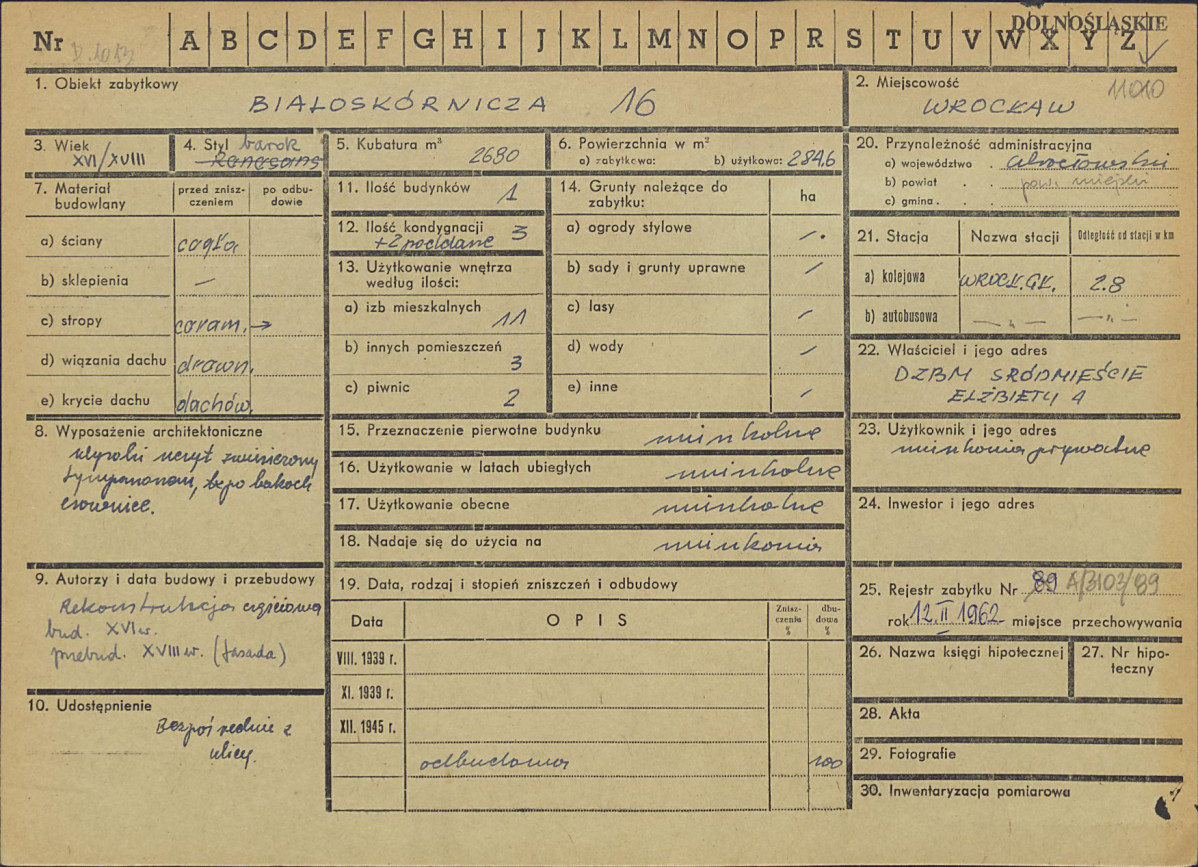 DOLNOŚLĄSKIE
Nr A B C D E F G H I J K L M N O P R S T U V W X Y Z
1. Obiekt zabytkowy
BIAŁOSKÓRNICZA 16
2. Miejscowość
11010
WROCŁAW
3. Wiek
XVI/XVIII
4. Styl barok
Renesans
5. Kubatura m³
2680
6. Powierzchnia w m²
a) zabytkowa: b) użytkowa: 284,6
20. Przynależność administracyjna
a) województwo
b) powiat . .
c) gmina . . .
7. Materiał budowlany
przed zniszczeniem
po odbudowie
a) ściany cegła
b) sklepienia —
c) stropy ceram. →
d) wiązania dachu drewn.
e) krycie dachu dachów.
11. Ilość budynków 1
12. Ilość kondygnacji 3
+2 poddasze
13. Użytkowanie wnętrza
według ilości:
a) izb mieszkalnych 11
b) innych pomieszczeń 3
c) piwnic 2
14. Grunty należące do
zabytku:
ha
a) ogrody stylowe
b) sady i grunty uprawne
c) lasy
d) wody
e) inne
21. Stacja
Nazwa stacji
Odległość od stacji w km
a) kolejowa WROCŁ.GŁ. 2.8
b) autobusowa — „ — — „ —
22. Właściciel i jego adres
DZBM ŚRÓDMIEŚCIE
ELŻBIETY 4
8. Wyposażenie architektoniczne
wysoki szczyt zwieńczony
tympanonem, 
esownice.
15. Przeznaczenie pierwotne budynku mieszkalne
16. Użytkowanie w latach ubiegłych mieszkalne
17. Użytkowanie obecne mieszkalne
18. Nadaje się do użycia na mieszkania
23. Użytkownik i jego adres
mieszkania prywatne
24. Inwestor i jego adres
9. Autorzy i data budowy i przebudowy
Rekonstrukcja częściowa
bud. XVI w.
przebud. XVIII w. (fasada)
10. Udostępnienie
Bezpośrednie z
ulicy.
19. Data, rodzaj i stopień zniszczeń i odbudowy
Data
OPIS
Zniszczenia %
dbudowa %
VIII. 1939 r.
XI. 1939 r.
XII. 1945 r.
odbudowa 100
25. Rejestr zabytku Nr 89 A/3103/89
rok 12.II 1962 miejsce przechowywania
26. Nazwa księgi hipotecznej
27. Nr hipoteczny
28. Akta
29. Fotografie
30. Inwentaryzacja pomiarowa